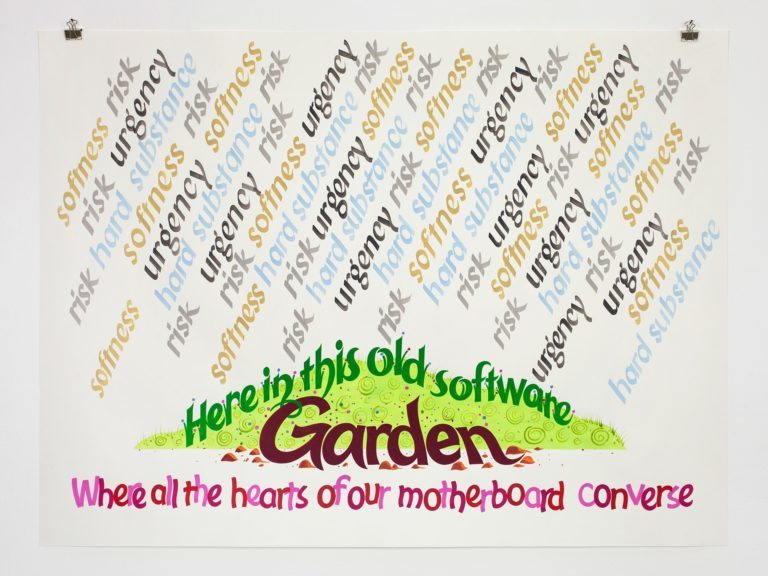 softness risk
risk urgency
risk hard substance
softness risk
softness urgency softness
hard substance risk
risk urgency risk
risk softness urgency
softness hard substance risk
risk urgency softness
risk hard substance risk
urgency risk softness
hard substance risk
risk softness urgency
hard substance risk
risk risk softness
softness risk urgency
risk urgency softness risk
hard substance softness
urgency risk risk
urgency
softness
hard substance
Here in this old software
Garden
Where all the hearts of our motherboard converse